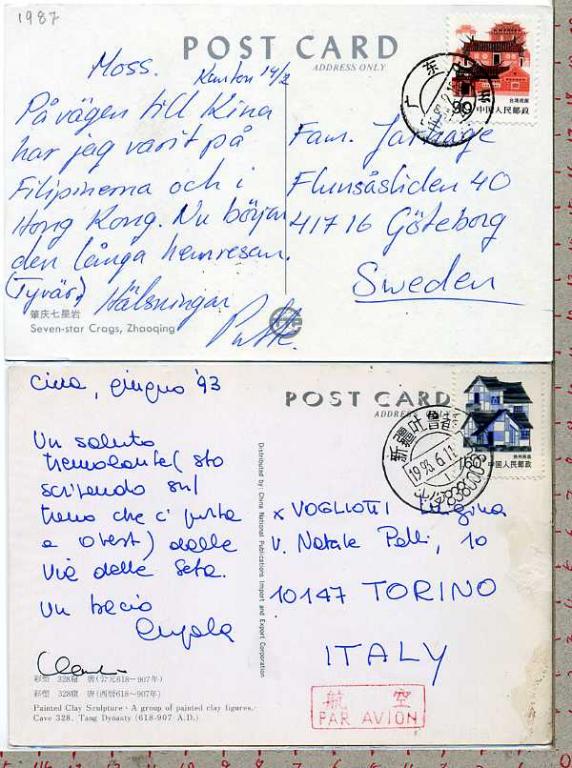 1987
POST CARD
ADDRESS ONLY
Moss. Kanton 14/2
På vägen till Kina
har jag varit på
Filipinerna och i
Hong Kong. Nu börjar
den långa hemresan.
(Tyvär) Hälsningar
Putte.
肇庆七星岩
Seven-star Crags, Zhaoqing
中国人民邮政
广东
Fam.
Flunsåsliden 40
417 16 Göteborg
Sweden
Cina, giugno '93
POST CARD
ADDRESS
Un saluto
tremolante (sto
scrivendo sul
treno che ci porta
a ovest) dalla
Via della Seta.
Un bacio
彩塑 328窟 唐(公元618—907年)
彩塑 328窟 唐(西暦618～907年)
Painted Clay Sculpture · A group of painted clay figures.
Cave 328. Tang Dynasty (618-907 A.D.)
Distributed by: China National Publications Import and Export Corporation
中国人民邮政
新疆吐鲁番
1993.6.11
838000
x VOGLIOTTI
V. Natale Palli, 10
10147 TORINO
ITALY
航 空
PAR AVION